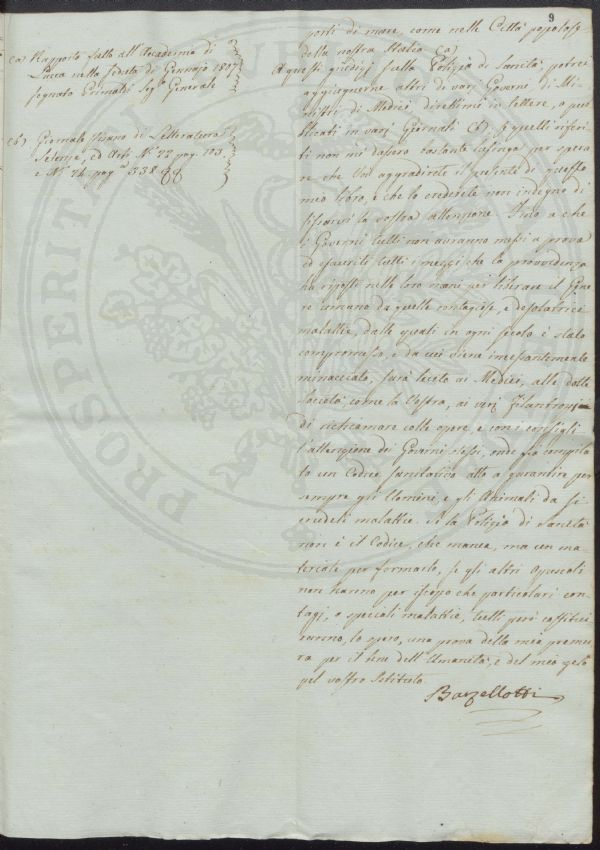 9
porti di mare, come nelle Città popolose
della nostra Italia (a)
A questi giudizj sulla Polizia di Sanità, potrei
aggiungerne altri di varj Governi, di Mi-
nistri, di Medici direttimi in lettere, o pub
blicati in varj Giornali (b), se quelli riferi-
ti non mi dassero bastante lusinga per spera
re che Voi aggradirete il presente di questo
mio libro, e che lo crederete non indegno di
fissarvi la vostra attenzione. Fino a che
i Governi tutti non avranno messi a prova
ed esauriti tutti i mezzi che la provvidenza
ha riposti nelle loro mani per liberare il Gene
re umano da quelle contagiose, e desolatrici
malattie, dalle quali in ogni secolo è stato
compromesso, e da cui viene incessantemente
minacciato, sarà lecito ai Medici, alle dotte
società, come la Vostra, ai veri Filantropi
di richiamare colle opere, e con i consigli
l'attenzione dei Governi stessi, onde sia compila
to un Codice sanitario atto a garantire per
sempre gli Uomini, e gli Animali da sì
crudeli malattie. Se la Polizia di Sanità
non è il Codice, che manca, ma un ma-
teriale per formarlo, se gli altri Opuscoli
non hanno per iscopo che particolari con-
tagj, o speciali malattie, tutti però costitui
ranno, lo spero, una prova della mia premu
ra per il bene dell'Umanità, e del mio zelo
pel vostro Istituto.
Barzellotti
(a) Rapporto fatto all'Accademia di
Lucca nella seduta di Gennajo 1807
segnato Seg.o Generale
(b) Giornale Pisano di Letteratura
Scienze, ed Arti N.o 23 pag. 103
e N.o 24 pag.
PROSPERITA